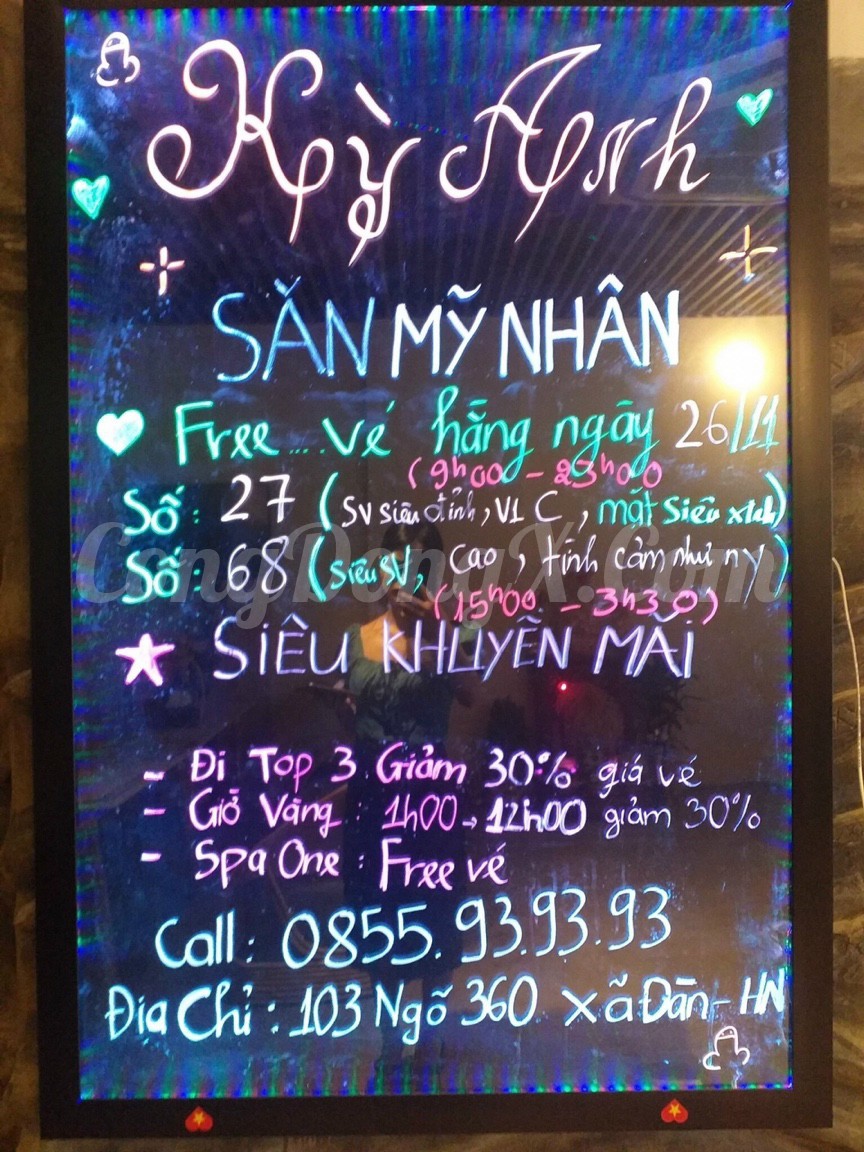 Kỳ Anh
SĂN MỸ NHÂN
Free ... vé hằng ngày 26/11
(9h00 - 23h00
Số: 27 (SV siêu đỉnh, V1 C, mặt siêu xinh)
Số: 68 (siêu SV, cao, tình cảm như ny)
(15h00 - 3h30)
CongDongX.Com
SIÊU KHUYẾN MÃI
- Đi Top 3 Giảm 30% giá vé
- Giờ Vàng: 1h00 → 12h00 giảm 30%
- Spa One: Free vé
Call: 0855.93.93.93
Địa Chỉ: 103 Ngõ 360 Xã Đàn - HN